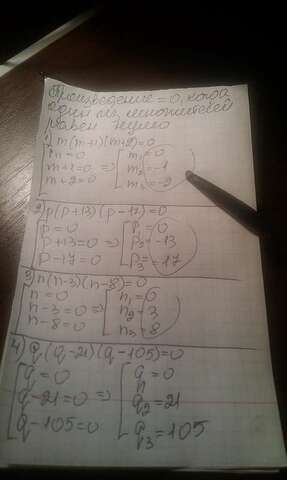 Произведение = 0, когда
один из множителей
равен нулю
1) m(m+1)(m+2)=0
m=0 m₁=0
m+1=0 => m₂=-1
m+2=0 m₃=-2
2) p(p+13)(p-17)=0
p=0 p₁=0
p+13=0 => p₂=-13
p-17=0 p₃=17
3) n(n-3)(n-8)=0
n=0 n₁=0
n-3=0 => n₂=3
n-8=0 n₃=8
4) q(q-21)(q-105)=0
q=0 q=0
q-21=0 => q₂=21
q-105=0 q₃=105